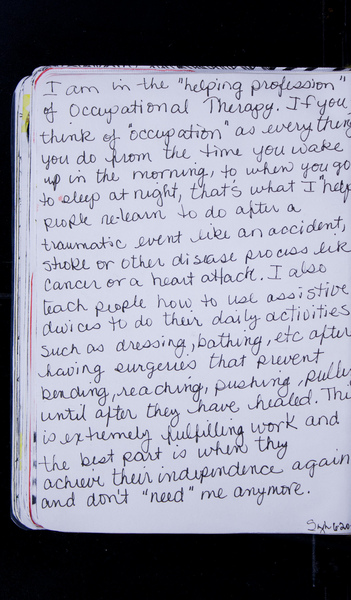 I am in the "helping profession"
of Occupational Therapy. If you
think of "occupation" as everything
you do from the time you wake
up in the morning, to when you go
to sleep at night, that's what I "help
people re-learn to do after a
traumatic event like an accident,
stroke or other disease process like
cancer or a heart attack. I also
teach people how to use assistive
devices to do their daily activities
such as dressing, bathing, etc after
having surgeries that prevent
bending, reaching, pushing, pulli
until after they have healed. This
is extremely fulfilling work and
the best part is when they
achieve their independence again
and don't "need" me anymore.